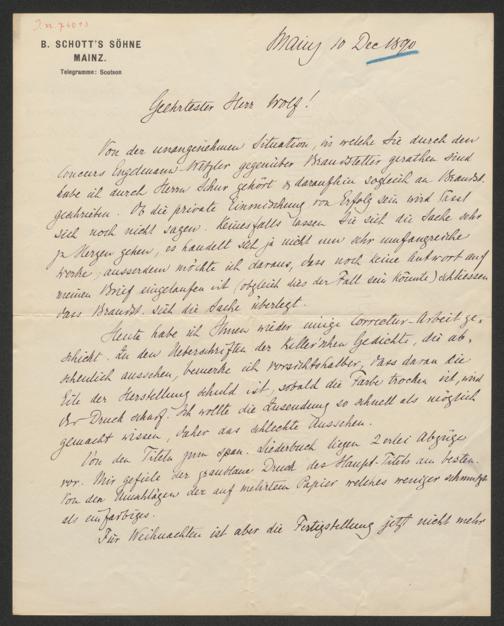 B. SCHOTT'S SÖHNE
MAINZ.
Telegramme: Scotson
Mainz 10 Dec 1890
Geehrtester Herr Wolf!
Von der unangenehmen Situation, in welche Sie durch den
Concurs Engelmann Wetzler gegenüber Brandstetter gerathen sind
habe ich durch Herrn Schur gehört & daraufhin sogleich an Brandst.
geschrieben. Ob die private Einmischung von Erfolg sein wird lässt
sich noch nicht sagen. Keinesfalls lassen Sie sich die Sache sehr
zu Herzen gehen, es handelt sich ja nicht um sehr umfangreiche
Werke; ausserdem möchte ich daraus, dass noch keine Antwort auf
meinen Brief eingelaufen ist (obgleich dies der Fall sein könnte) schliessen
dass Brandst. sich die Sache überlegt.
Heute habe ich Ihnen wieder einige Correctur-Arbeit ge-
schickt. Zu den Ueberschriften der Keller'schen Gedichte, die ab-
scheulich aussehen, bemerke ich vorsichtshalber, dass daran die
Eile der Herstellung schuld ist, sobald die Farbe trocken ist, wird
der Druck scharf. Ich wollte die Zusendung so schnell als möglich
gemacht wissen, daher das schlechte Aussehen.
Von den Titeln zum span. Liederbuch liegen 2erlei Abzüge
vor. Mir gefiele der graublaue Druck des Haupt-Titels am besten.
Von den Umschlägen der auf mehrtem Papier welches weniger schmutze
als einfarbiges.
Für Weihnachten ist aber die Fertigstellung jetzt nicht mehr